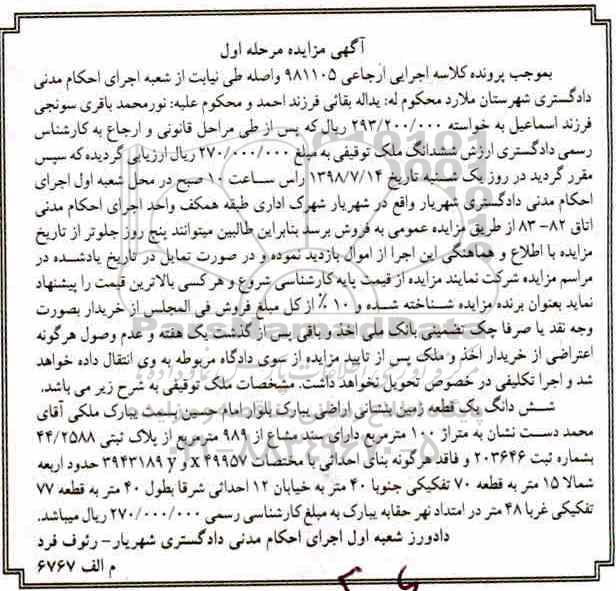 آگهی مزایده مرحله اول
بموجب پرونده کلاسه اجرایی ارجاعی ۹۸۱۱۰۵ واصله طی نیابت از شعبه اجرای احکام مدنی
دادگستری شهرستان ملارد محکوم له: یداله بقائی فرزند احمد و محکوم علیه: نورمحمد باقری سونجی
فرزند اسماعیل به خواسته ۲۹۳/۲۰۰/۰۰۰ ریال که پس از طی مراحل قانونی و ارجاع به کارشناس
رسمی دادگستری ارزش ششدانگ ملک توقیفی به مبلغ ۲۷۰/۰۰۰/۰۰۰ ریال ارزیابی گردیده که سپس
مقرر گردید در روز یک شنبه تاریخ ۱۳۹۸/۷/۱۴ راس ساعت ۱۰ صبح در محل شعبه اول اجرای
احکام مدنی دادگستری شهریار واقع در شهریار شهرک اداری طبقه همکف واحد اجرای احکام مدنی
اتاق ۸۲- ۸۳ از طریق مزایده عمومی به فروش برسد بنابراین طالبین میتوانند پنج روز جلوتر از تاریخ
مزایده با اطلاع و هماهنگی این اجرا از اموال بازدید نموده و در صورت تمایل در تاریخ یادشده در
مراسم مزایده شرکت نمایند مزایده از قیمت پایه کارشناسی شروع و هر کسی بالاترین قیمت را پیشنهاد
نماید بعنوان برنده مزایده شناخته شده و ۱۰ ٪ از کل مبلغ فروش فی المجلس از خریدار بصورت
وجه نقد یا صرفا چک تضمینی بانک ملی اخذ و باقی پس از گذشت یک هفته و عدم وصول هرگونه
اعتراضی از خریدار اخذ و ملک پس از تایید مزایده از سوی دادگاه مربوطه به وی انتقال داده خواهد
شد و اجرا تکلیفی در خصوص تحویل نخواهد داشت. مشخصات ملک توقیفی به شرح زیر می باشد.
شش دانگ یک قطعه زمین بشناتی اراضی یبارک بلوار امام حسین پلیست یبارک ملکی آقای
محمد دست نشان به متراژ ۱۰۰ مترمربع دارای سند مشاع از ۹۸۹ مترمربع از پلاک ثبتی ۴۴/۲۵۸۸
بشماره ثبت ۲۰۳۶۴۶ و فاقد هرگونه بنای احداثی با مختصات x ۴۹۹۵۷ و y ۳۹۴۳۱۸۹ حدود اربعه
شمالا ۱۵ متر به قطعه ۷۰ تفکیکی جنوبا ۴۰ متر به خیابان ۱۲ احداثی شرقا بطول ۴۰ متر به قطعه ۷۷
تفکیکی غربا ۴۸ متر در امتداد نهر حقابه یبارک به مبلغ کارشناسی رسمی ۲۷۰/۰۰۰/۰۰۰ ریال میباشد.
دادورز شعبه اول اجرای احکام مدنی دادگستری شهریار- رئوف فرد
م الف ۶۷۶۷
ParsNamadData
۰۲۱-۸۸۳۴۹۶۷۰-۵